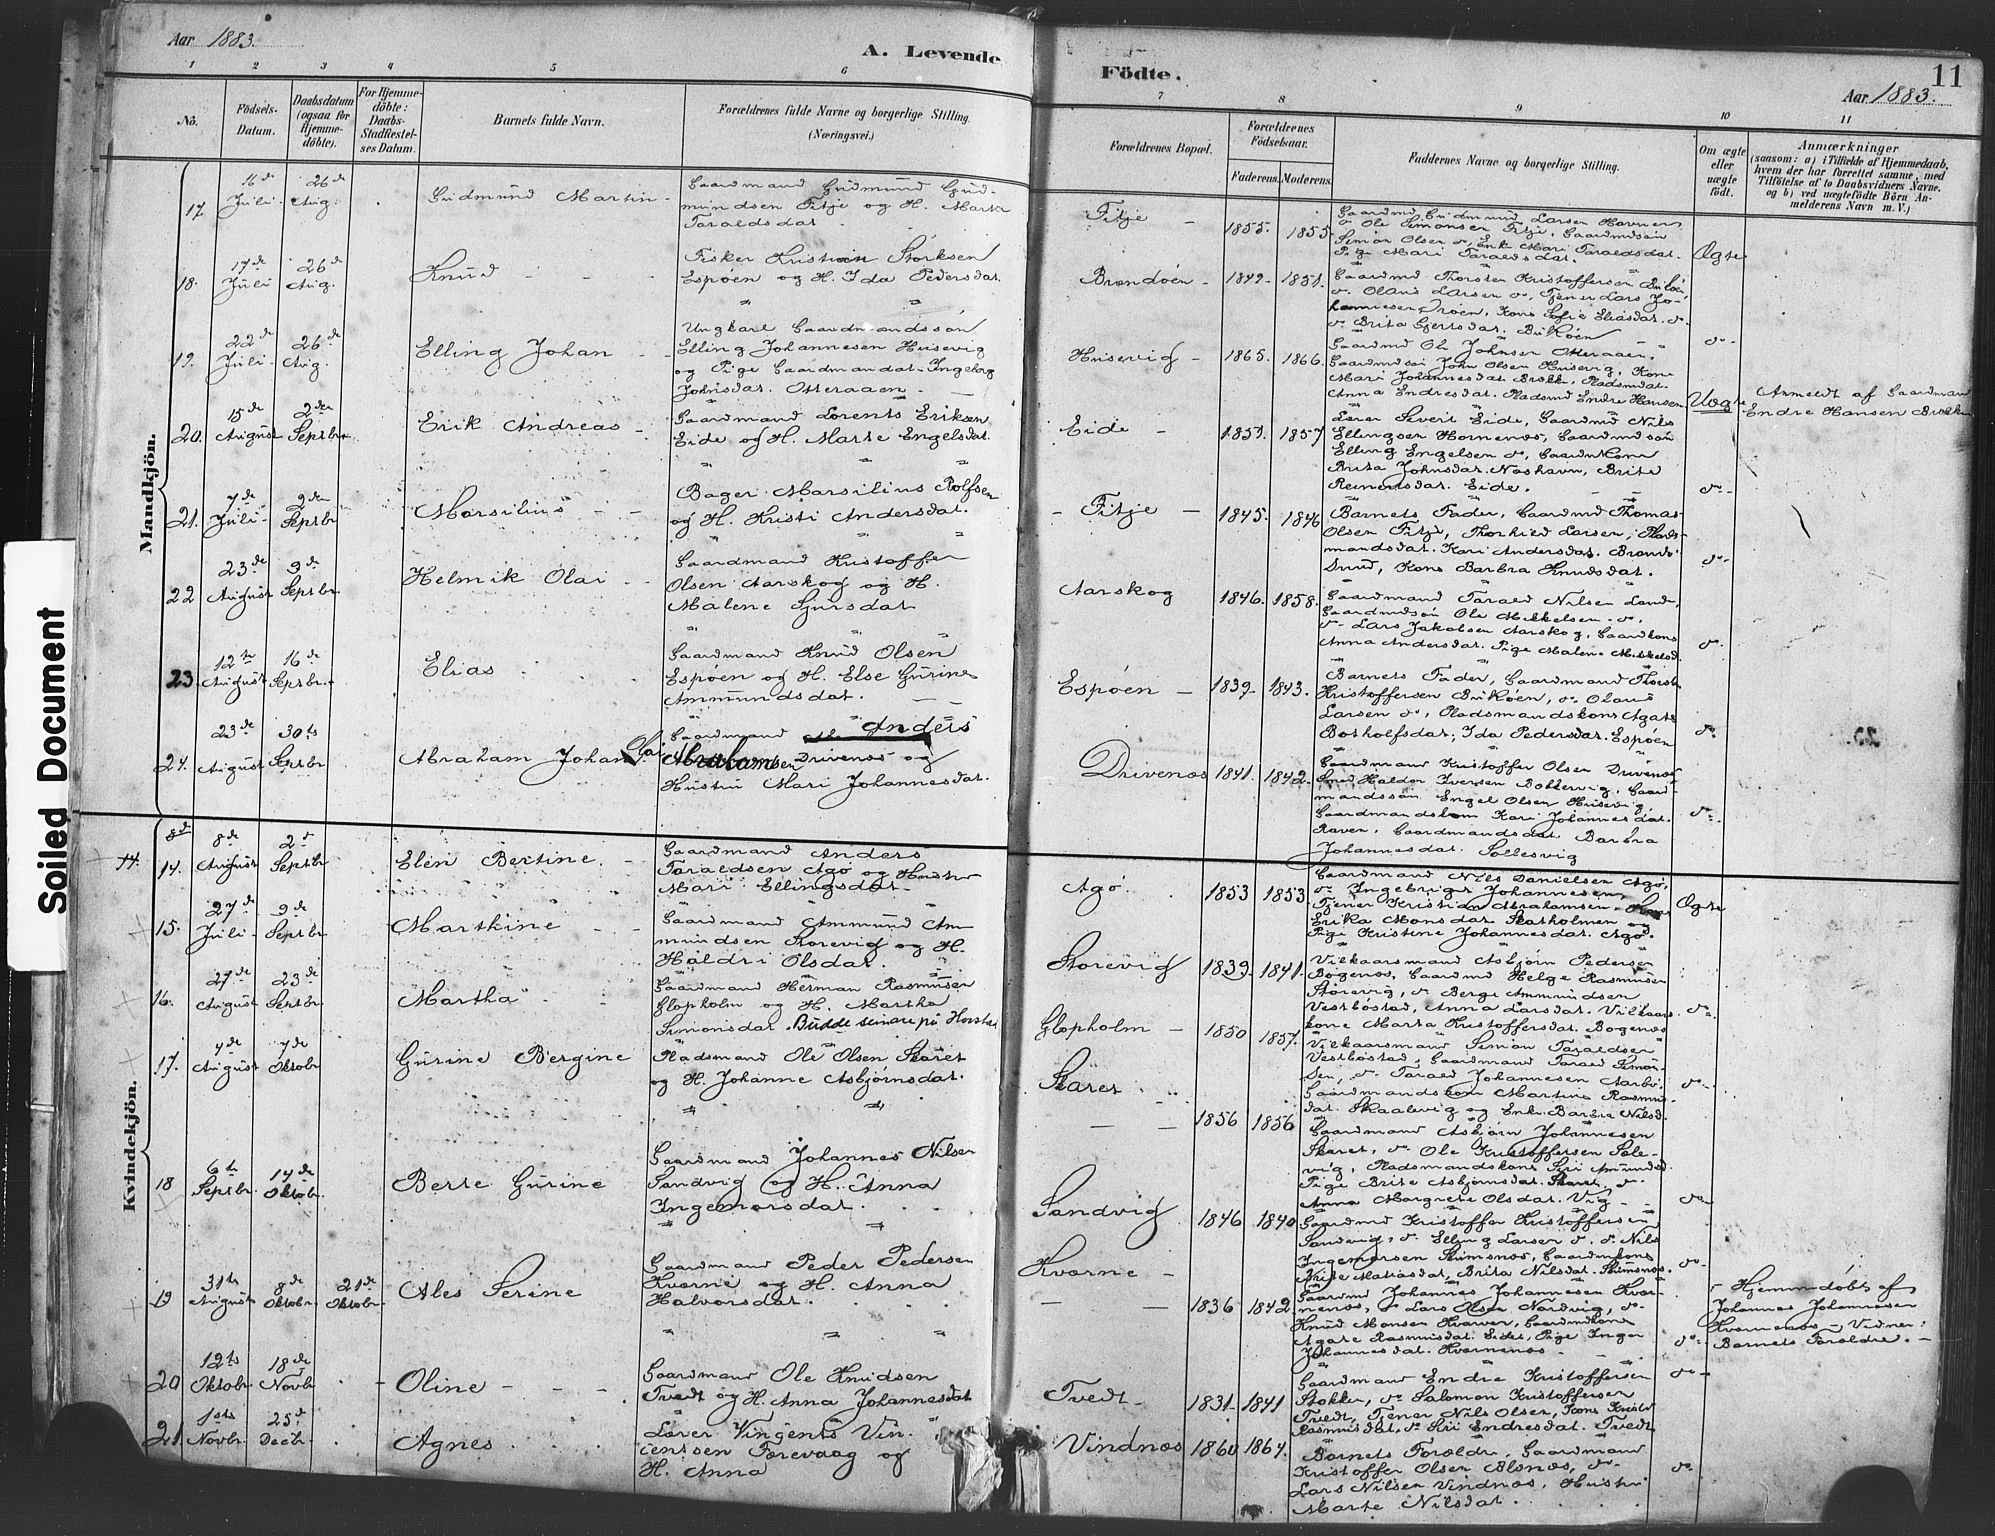 Aar 1883.
A. Levende
Födte.
11
Aar 1883.
1 2 3 4 5 6 7 8 9 10 11
No.
Födsels-
Datum.
Daabsdatum
(ogsaa for
Hjemme-
döbte).
For Hjemme-
döbte:
Daabs-
Stadfæstel-
ses Datum.
Barnets fulde Navn.
Forældrenes fulde Navne og borgerlige Stilling.
(Næringsvei.)
Forældrenes Bopæl.
Forældrenes
Födselsaar.
Faderens. Moderens.
Faddernes Navne og borgerlige Stilling.
Om ægte
eller
uægte
födt.
Anmærkninger
(saasom: a) i Tilfælde af Hjemmedaab,
hvem der har forrettet samme, med
Tilföielse af to Daabsvidners Navne.
og b) ved uægtefödte Börn An-
melderens Navn m. V.)
Mandkjön.
17. 16de Juli. 26de Aug. Gudmund Martin
Gaardmand Gudmund Gud-
mundsen Fitje og H. Marta
Taraldsdat
Fitje 1855. 1855.
Gaardmd Gudmund Larsen Havnen,
do Ole Simonsen Fitje, Gaardmdsön
Simon Olsen do, Enke Mari Taraldsdat.
Pige Mari Taraldsdat.
Ægte
18. 17de Juli 26de Aug. Knud
Fisker Kristian Störksen
Espöen og H. Ida Pedersdat.
Brandöen 1842 1851.
Gaardmd Thorsten Kristoffersen
do Olaus Larsen do, Tjener Lars Jo-
hannesen Dröen, Kone Sofie Eliasdat. do
do Brita Gjertsdat. Buköen
do
19. 22de Juli. 26de Aug. Elling Johan
Ungkarl Gaardmandssön
Elling Johannesen Husevig
og Pige Gaardmandat. Ingeborg
Johnsdat. Otteraaen
Husevig 1865. 1866.
Gaardmd Ole Johnsen Otteraaen,
Gaardmdsön John Olsen Husevig, Kone
Mari Johannesdat. Brække, Pladsmdat.
Anna Endresdat. Pladsmd Endre Hansen
Uægte
Anmeldt af Gaardmand
Endre Hansen Brække
20. 15de August 2den Septbr. Erik Andreas
Gaardmand Lorents Eriksen
Eide og H. Marte Engelsdat.
Eide 1857
Lærer Sivert Eide, Gaardmd Nils
Ellingsen Hornenes, Gaardmdsön
Elling Engelsen do, Gaardmkone
Brita Johnsdat. Nashavn, Brite
Reinertsdat. Eide.
do
21. 7de Juli 9den Septbr Marsilius
Bager Marsilius Rolfsen
og H. Kristi Andersdat.
Fitje 1845. 1846
Barnets Fader, Gaardmd Thomas
Olsen Fitje, Thorkild Larsen, Plads-
mandsdat. Kari Andersdat. Brande-
sund, Kone Barbra Knudsdat.
do
22 23de August 9de Septbr. Helmik Olai
Gaardmand Kristoffer
Olsen Aarskog og H.
Malene Sjursdat
Aarskog 1846. 1858.
Gaardmand Tarald Nilsen Lande,
Gaardmdsön Ole Mikkelsen do,
do Lars Jakobsen Aarskog, Gaardkone
Anna Andersdat. Pige Malene Mikkelsd.
do
23. 12te August 16de Septbr. Elias
Gaardmand Knud Olsen
Espöen og H. Else Gurine
Ammundsdat.
Espöen 1839 1843.
Barnets Fader, Gaardmand Thorsten
Kristoffersen Buköen, do Olaus
Larsen do, Pladsmandskone Agate
Botholfsdat, Ida Pedersdat. Espöen
do
24. 23de August 30te Septbr Abraham Johan Olai
Gaardmand Anders
Abrahamsen Drivenes og
Hustru Mari Johannesdat.
Drivenes 1841. 1842
Gaardmand Kristoffer Olsen Drivenes
Smed Haldor Iversen Bottervig, Gaard-
mandssön Engel Olsen Husevig,
Gaardmandskone Kari Johannesdat.
Raven, Gaardmandsdat. Barbra
Johannesdat. Sollesvig
do
Kvindekjön.
14. 8de August 2d Septbr Elen Bertine
Gaardmand Anders
Taraldsen Agö og Hustru
Mari Ellingsdat
Agö. 1853 1853
Gaardmand Nils Danielsen Agö,
do Ingebrigt Johannesen,
Tjener Kristian Abrahamsen
Erika Monsdat. Skarholmen og
Pige Kristine Johannesdat. Agö.
Ægte
15. 27de Juli 9de Septbr Marthine
Gaardmand Ammund Am-
mundsen Storevig og H.
Haldri Olsdat.
Storevig 1839 1841.
Vilkaarsmand Asbjörn Pedersen
Bogenes, Gaardmd Helge Rasmusen
Störevig, do Berge Ammundsen
Vestböstad, Anna Larsdat. Vilkaars-
kone Marta Kristoffersdat. Bogenes
do
16. 27de August 23de Septbr Martha
Gaardmand Herman Rasmusen
Glopholm og H. Martha
Simonsdat. Budde seinare på Horstad
Glopholm 1850 1857.
Vilkaarsmand Simon Taraldsen
Vestböstad, Gaardmand Tarald Simon-
sen, do Tarald Johannesen Aarbö
Gaardmandskone Martine Rasmus-
dat. Skaalevig og Enke Barbra Nilsd.
do
17. 4de August 7de Oktobr Gurine Bergine
Pladsmand Ole Olsen Skaret
og H. Johanne Asbjörnsdat.
Skaret 1856 1856
Gaardmand Asbjörn Johannesen
Skaret, do Ole Kristoffersen Sole-
vig, Pladsmandskone Siri Amundsd.
Pige Brite Asbjörnsdat. Skaret, do
Anna Margrete Olsdat. Vig
do
18 6te Septbr. 14de Oktobr. Berte Gurine
Gaardmand Johannes Nilsen
Sandvig og H. Anna
Ingemarsdat.
Sandvig 1846 1840
Gaardmd Kristoffer Kristoffersen
Sandvig, do Elling Larsen do do Nils
Ingemarsen Skimsnes, Gaardmkone
Brite Matiasdat, Brita Nilsdat. Skimsnes.
do
19 31te August 8de Oktobr. 21de Oktobr. Ales Serine
Gaardmand Peder Pedersen
Kværne og H. Anna
Halvorsdat.
Kværne 1836 1842.
Gaardmd Johannes Johannesen Kvær-
nenes, do Lars Olsen Nordvig, do
Knud Monsen Kvarven, Gaardmdkone
Agate Rasmusdat. Eidet, Pige Inger
Johannesdat. Kværnenes
do
Hjemmedöbt af
Johannes Johannesen
Kværnenes – Vidner:
Barnets Forældre.
20 12te Oktobr 18de Novbr Oline
Gaardmand Ole Knudsen
Tvedt og H. Anna Johannesdat
Tvedt 1831 1841
Gaardmand Endre Kristoffersen
Stokker, do Salomon Kristoffersen
Tvedt, Tjener Nils Olsen, Kone Kristi
Rasmusdat, do Siri Endresdat. Tvedt
do
21. 1ste Novbr. 25d Decbr. Agnes
Lærer Vingents Vin-
centsen Forevaag og
H. Anna
Vindnes 1860 1864.
Barnets Forældre, Gaardmand
Kristoffer Olsen Blænes, do
Lars Nilsen Vindnes, Hustru
Marte Nilsdat.
do
Soiled Document